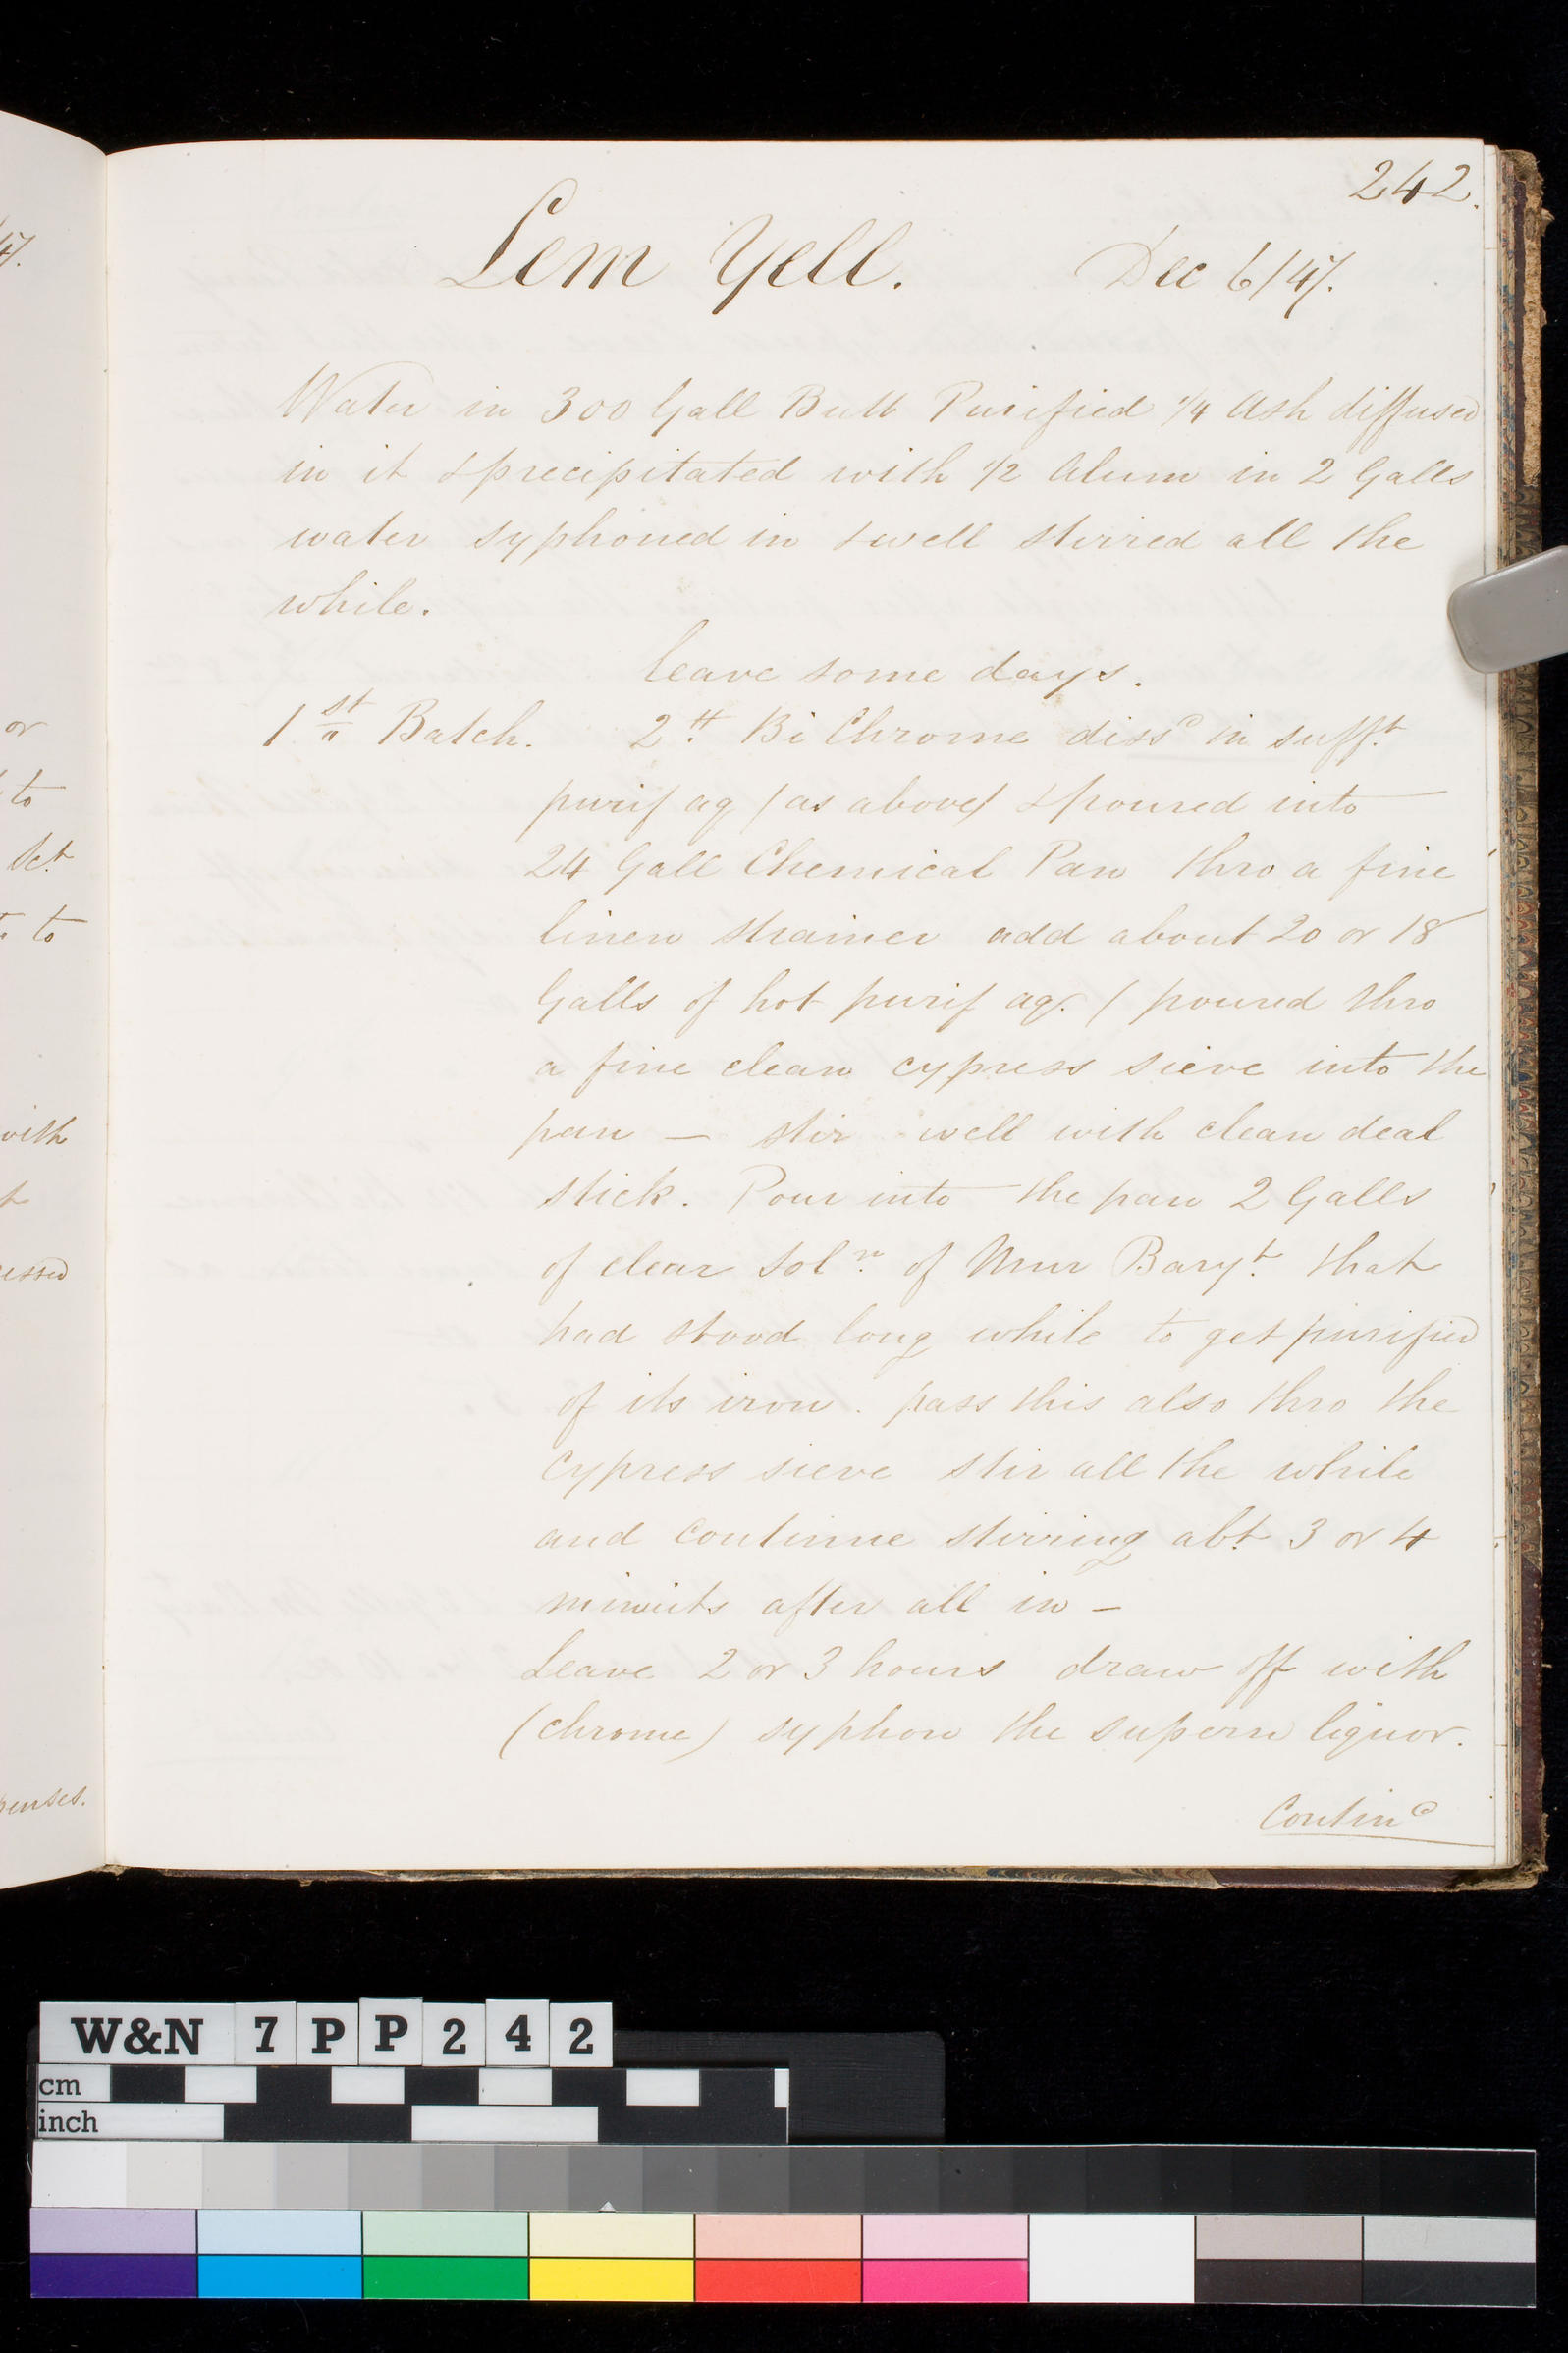 242.
Lem Yell. Dec 6/47.
Water in 300 Gall Butt Purified 1/4 Ash diffused
in it & precipitated with 1/2 Alum in 2 Galls
water syphoned in & well stirred all the
while.
leave some days.
1st Batch. 2 tt Bi Chrome dissd in sufft
purif aq (as above) & poured into
24 Gall Chemical Pan thro a fine
linen strainer add about 20 or 18
Galls of hot purif aq. ( poured thro
a fine clean cypress sieve into the
pan — stir well with clean deal
stick. Pour into the pan 2 Galls
of clear Soln. of Mur Baryt. that
had stood long while to get purified
of its iron. pass this also thro the
cypress sieve stir all the while
and continue stirring abt 3 or 4
minuits after all in —
Leave 2 or 3 hours draw off with
(chrome) syphon the supern liquor.
Contind
47.
or
to
Sct
to
with
essed
penses.
W&N 7PP242
cm
inch